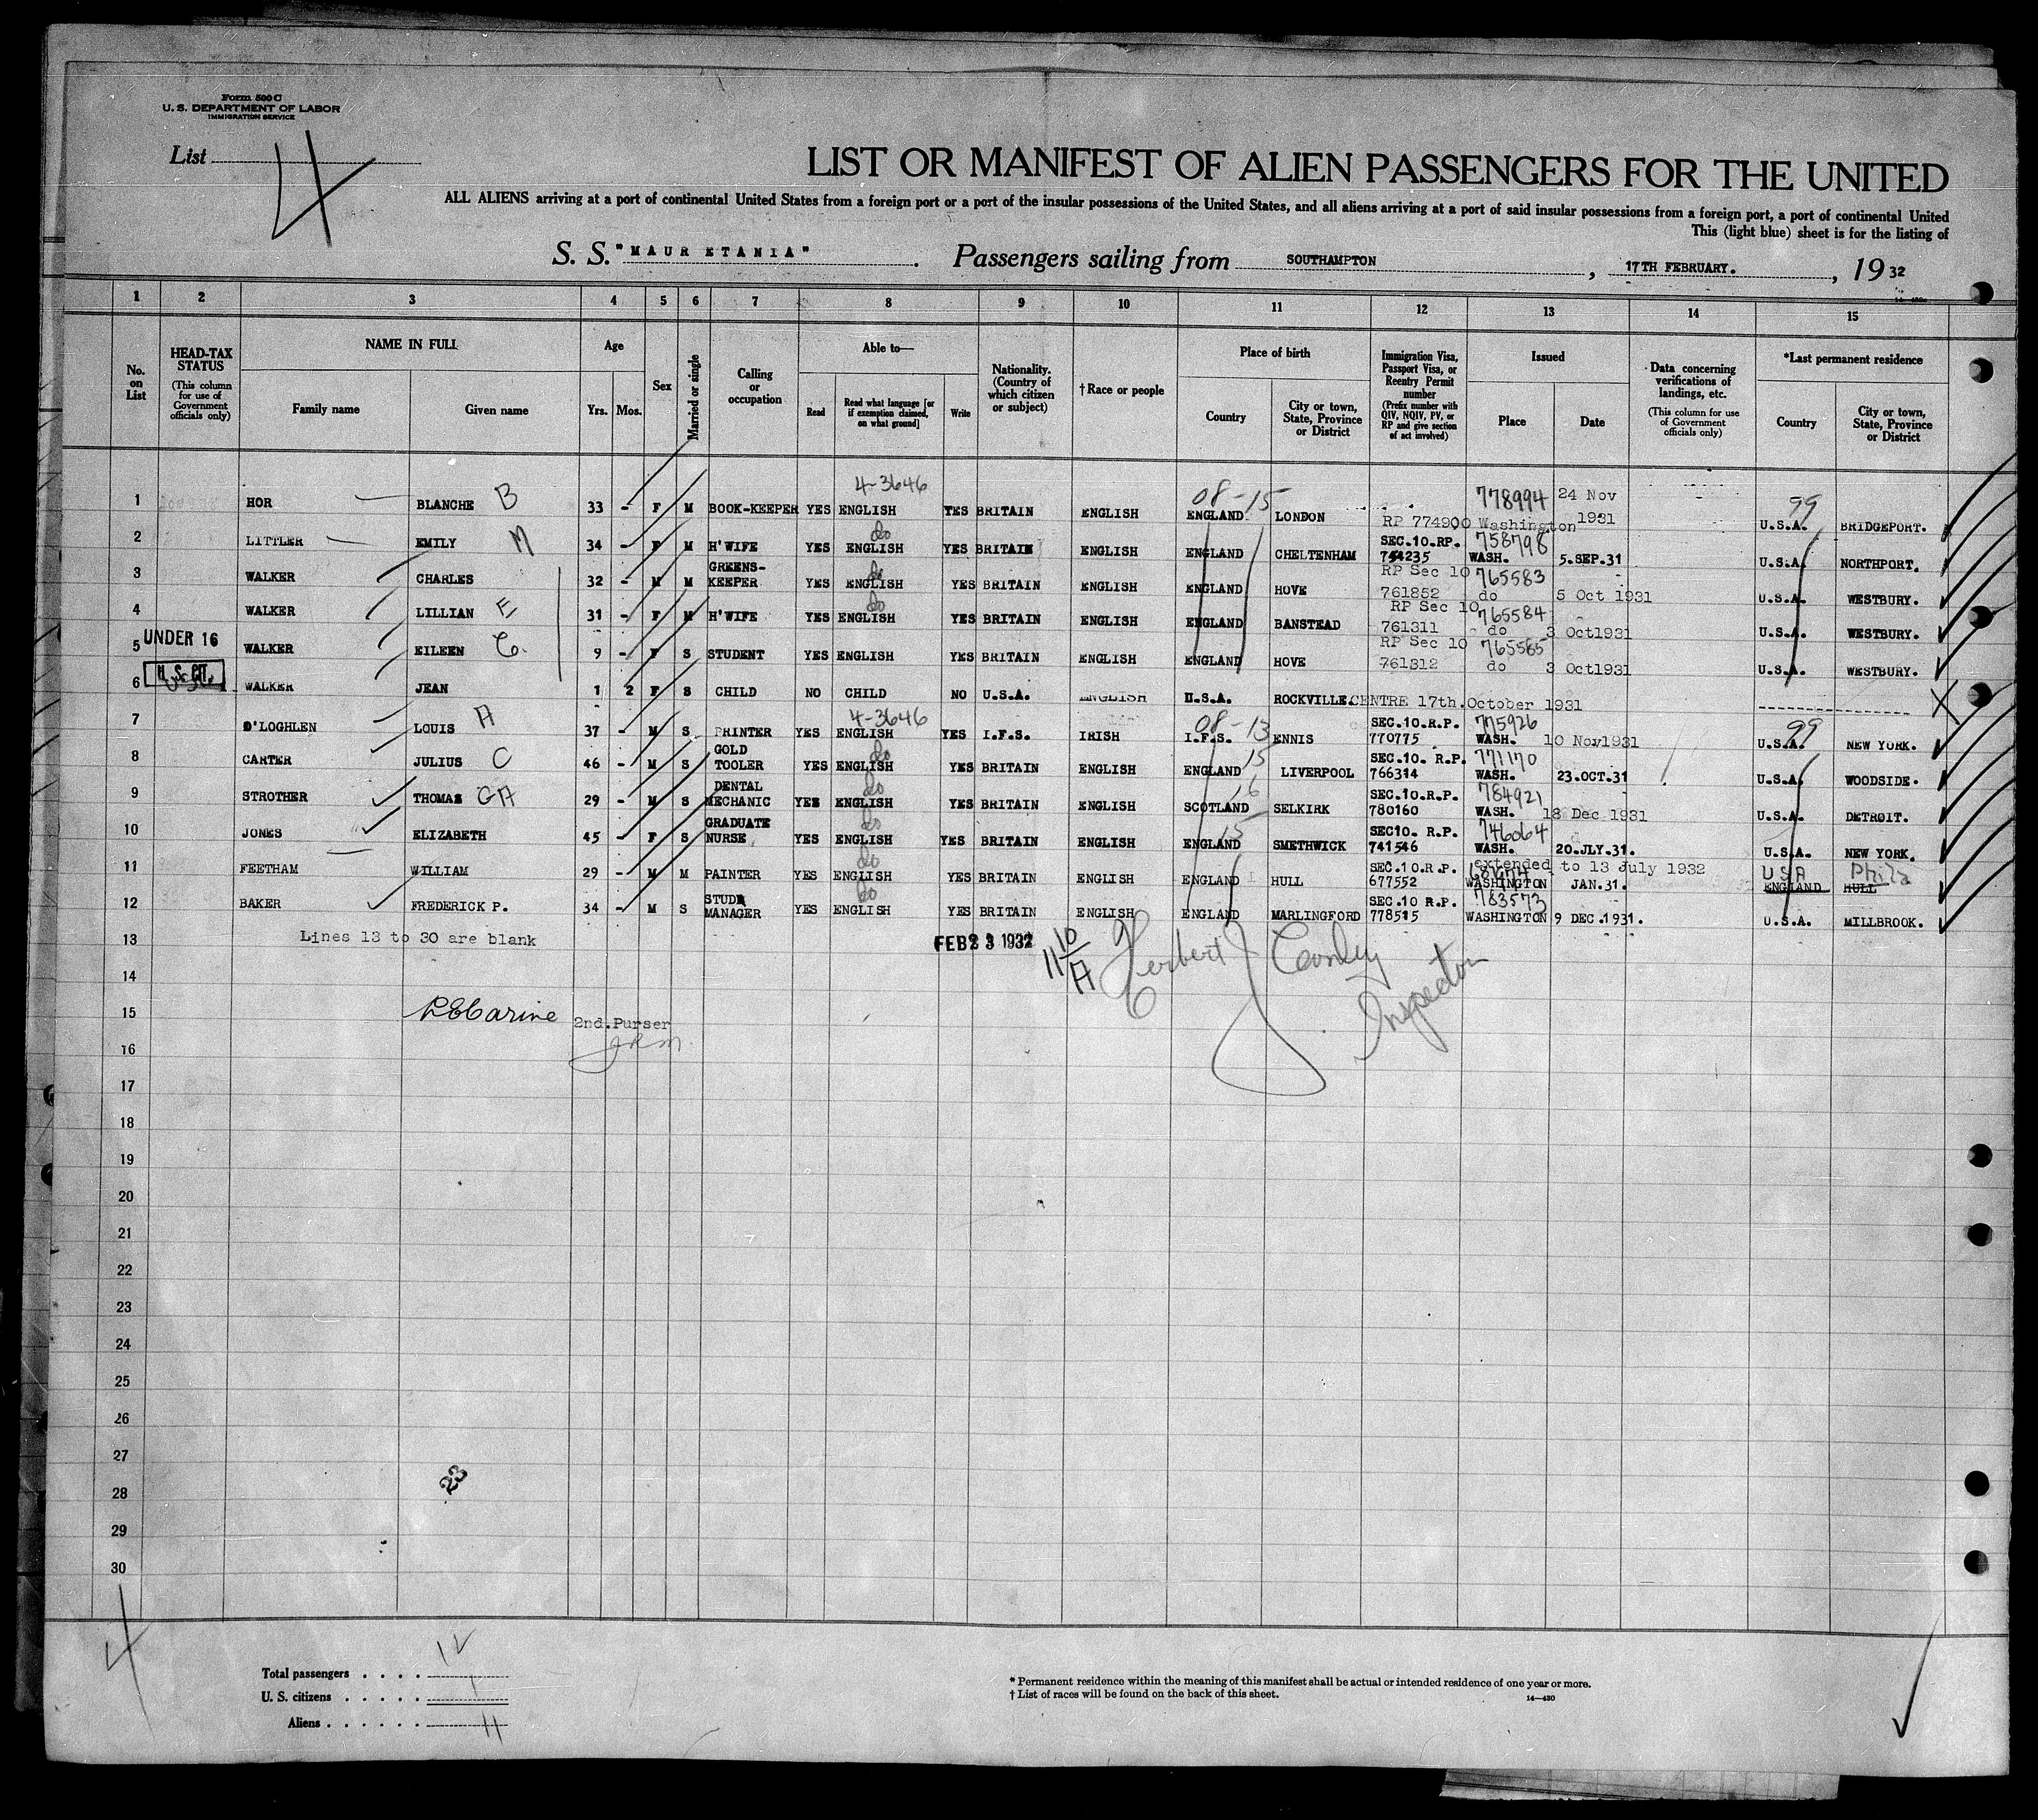 Form 500 C
U. S. DEPARTMENT OF LABOR
IMMIGRATION SERVICE
List 4
LIST OR MANIFEST OF ALIEN PASSENGERS FOR THE UNITED
ALL ALIENS arriving at a port of continental United States from a foreign port or a port of the insular possessions of the United States, and all aliens arriving at a port of said insular possessions from a foreign port, a port of continental United
This (light blue) sheet is for the listing of
S. S. "MAURETANIA". Passengers sailing from SOUTHAMPTON, 17TH FEBRUARY., 19 32
1 2 3 4 5 6 7 8 9 10 11 12 13 14 15
No. on List
HEAD-TAX STATUS (This column for use of Government officials only)
NAME IN FULL
Family name Given name
Age
Yrs. Mos.
Sex
Married or single
Calling or occupation
Able to—
Read Read what language [or if exemption claimed, on what ground] Write
Nationality. (Country of which citizen or subject)
† Race or people
Place of birth
Country City or town, State, Province or District
Immigration Visa, Passport Visa, or Reentry Permit number (Prefix number with QIV, NQIV, PV, or RP and give section of act involved)
Issued
Place Date
Data concerning verifications of landings, etc. (This column for use of Government officials only)
*Last permanent residence
Country City or town, State, Province or District
4-3646 08-15 778994 24 Nov 99
1 HOR BLANCHE B 33 - F M BOOK-KEEPER YES ENGLISH YES BRITAIN ENGLISH ENGLAND LONDON RP 774900 Washington 1931 U.S.A. BRIDGEPORT.
2 LITTLER EMILY M 34 - F M H'WIFE YES ENGLISH do YES BRITAIN ENGLISH ENGLAND CHELTENHAM SEC.10.RP. 754235 758798 WASH. 5.SEP.31 U.S.A. NORTHPORT.
3 WALKER CHARLES 32 - M M GREENS-KEEPER YES ENGLISH do YES BRITAIN ENGLISH ENGLAND HOVE RP Sec 10 761852 765583 do 5 Oct 1931 U.S.A. WESTBURY.
4 WALKER LILLIAN E 31 - F M H'WIFE YES ENGLISH do YES BRITAIN ENGLISH ENGLAND BANSTEAD RP Sec 10 761311 765584 do 3 Oct1931 U.S.A. WESTBURY.
UNDER 16
5 WALKER EILEEN C. 9 - F S STUDENT YES ENGLISH YES BRITAIN ENGLISH ENGLAND HOVE RP Sec 10 761312 765585 do 3 Oct1931 U.S.A. WESTBURY.
6 WALKER JEAN 1 2 F S CHILD NO CHILD NO U.S.A. ENGLISH U.S.A. ROCKVILLE.CENTRE 17th.October 1931
4-3646 08-13 99
7 O'LOGHLEN LOUIS A 37 - M S PRINTER YES ENGLISH YES I.F.S. IRISH I.F.S. ENNIS SEC.10.R.P. 770775 775926 WASH. 10 Nov1931 U.S.A. NEW YORK.
8 CARTER JULIUS C 46 - M S GOLD TOOLER YES ENGLISH do YES BRITAIN ENGLISH ENGLAND 15 LIVERPOOL SEC.10. R.P. 766314 771170 WASH. 23.OCT.31 U.S.A. WOODSIDE.
9 STROTHER THOMAS GA 29 - M S DENTAL MECHANIC YES ENGLISH do YES BRITAIN ENGLISH SCOTLAND 16 SELKIRK SEC.10.R.P. 780160 784921 WASH. 18 Dec 1931 U.S.A. DETROIT.
10 JONES ELIZABETH 45 - F S GRADUATE NURSE YES ENGLISH do YES BRITAIN ENGLISH ENGLAND 15 SMETHWICK SEC10. R.P. 741546 746064 WASH. 20.JLY.31. U.S.A. NEW YORK.
extended to 13 July 1932
11 FEETHAM WILLIAM 29 - M M PAINTER YES ENGLISH do YES BRITAIN ENGLISH ENGLAND HULL SEC.10.R.P. 677552 WASHINGTON JAN.31. USA Phila ENGLAND HULL
12 BAKER FREDERICK P. 34 - M S STUD MANAGER YES ENGLISH do YES BRITAIN ENGLISH ENGLAND MARLINGFORD SEC.10 R.P. 778515 783573 WASHINGTON 9 DEC.1931. U.S.A. MILLBROOK.
13 Lines 13 to 30 are blank FEB 23 1932
Herbert J Conley
Inspector
14
15
2nd.Purser
16
17
18
19
20
21
22
23
24
25
26
27
23
28
29
30
4
Total passengers . . . . 12
U. S. citizens . . . . . 1
Aliens . . . . . . 11
* Permanent residence within the meaning of this manifest shall be actual or intended residence of one year or more.
† List of races will be found on the back of this sheet. 14—430